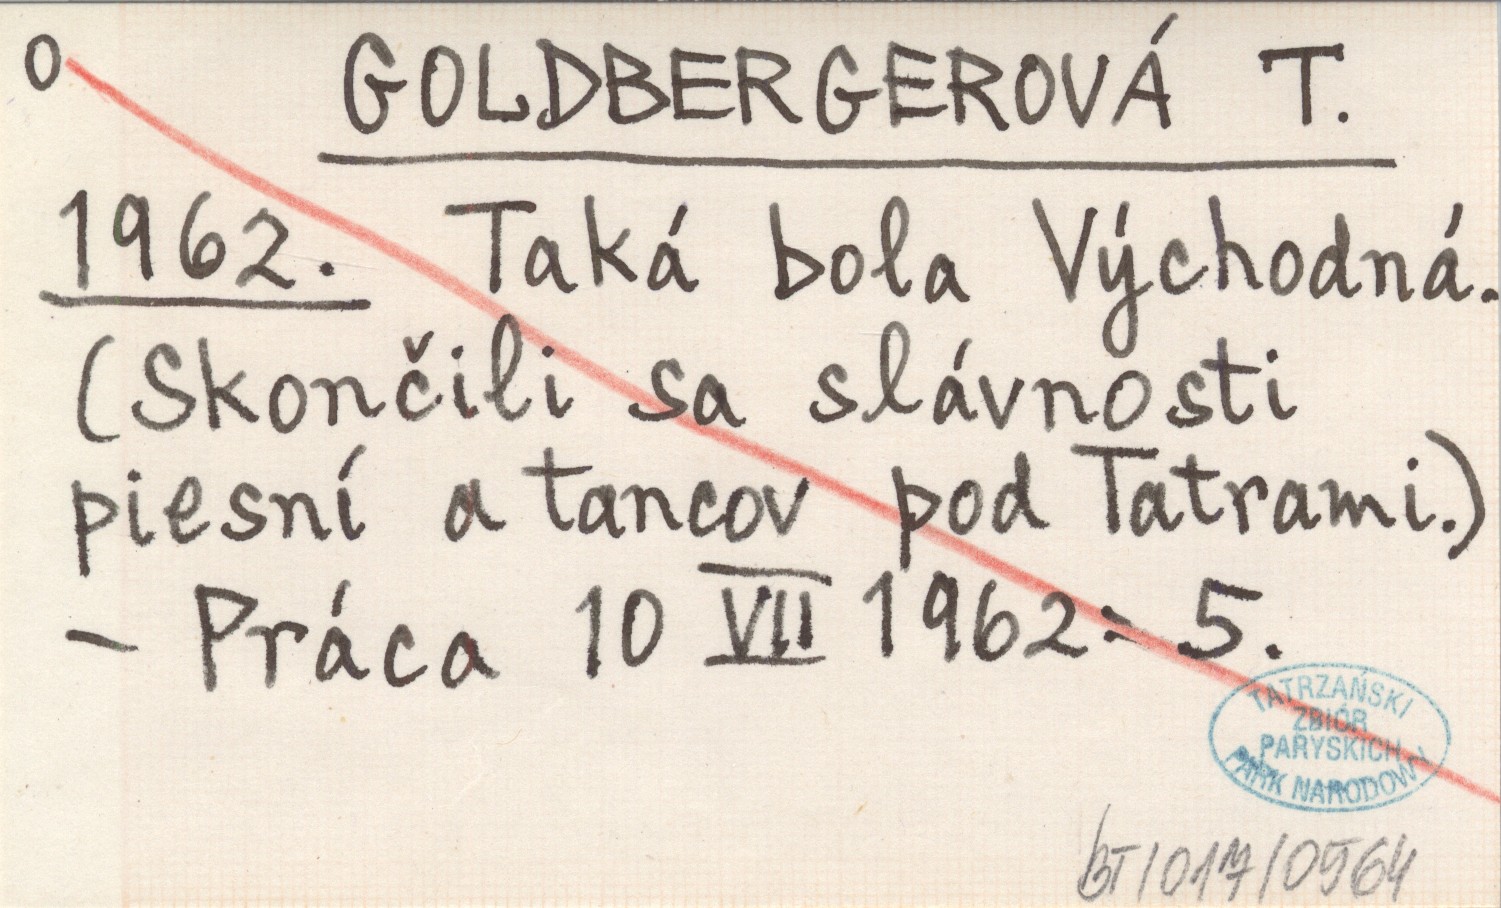 O GOLDBERGEROVÁ T.
1962. Taká bola Východná.
(Skončili sa slávnosti
piesní a tancov pod Tatrami.)
- Práca 10 VII 1962: 5.
TATRZAŃSKI
ZBIÓR
PARYSKICH
PARK NARODOWY
BT/017/0564